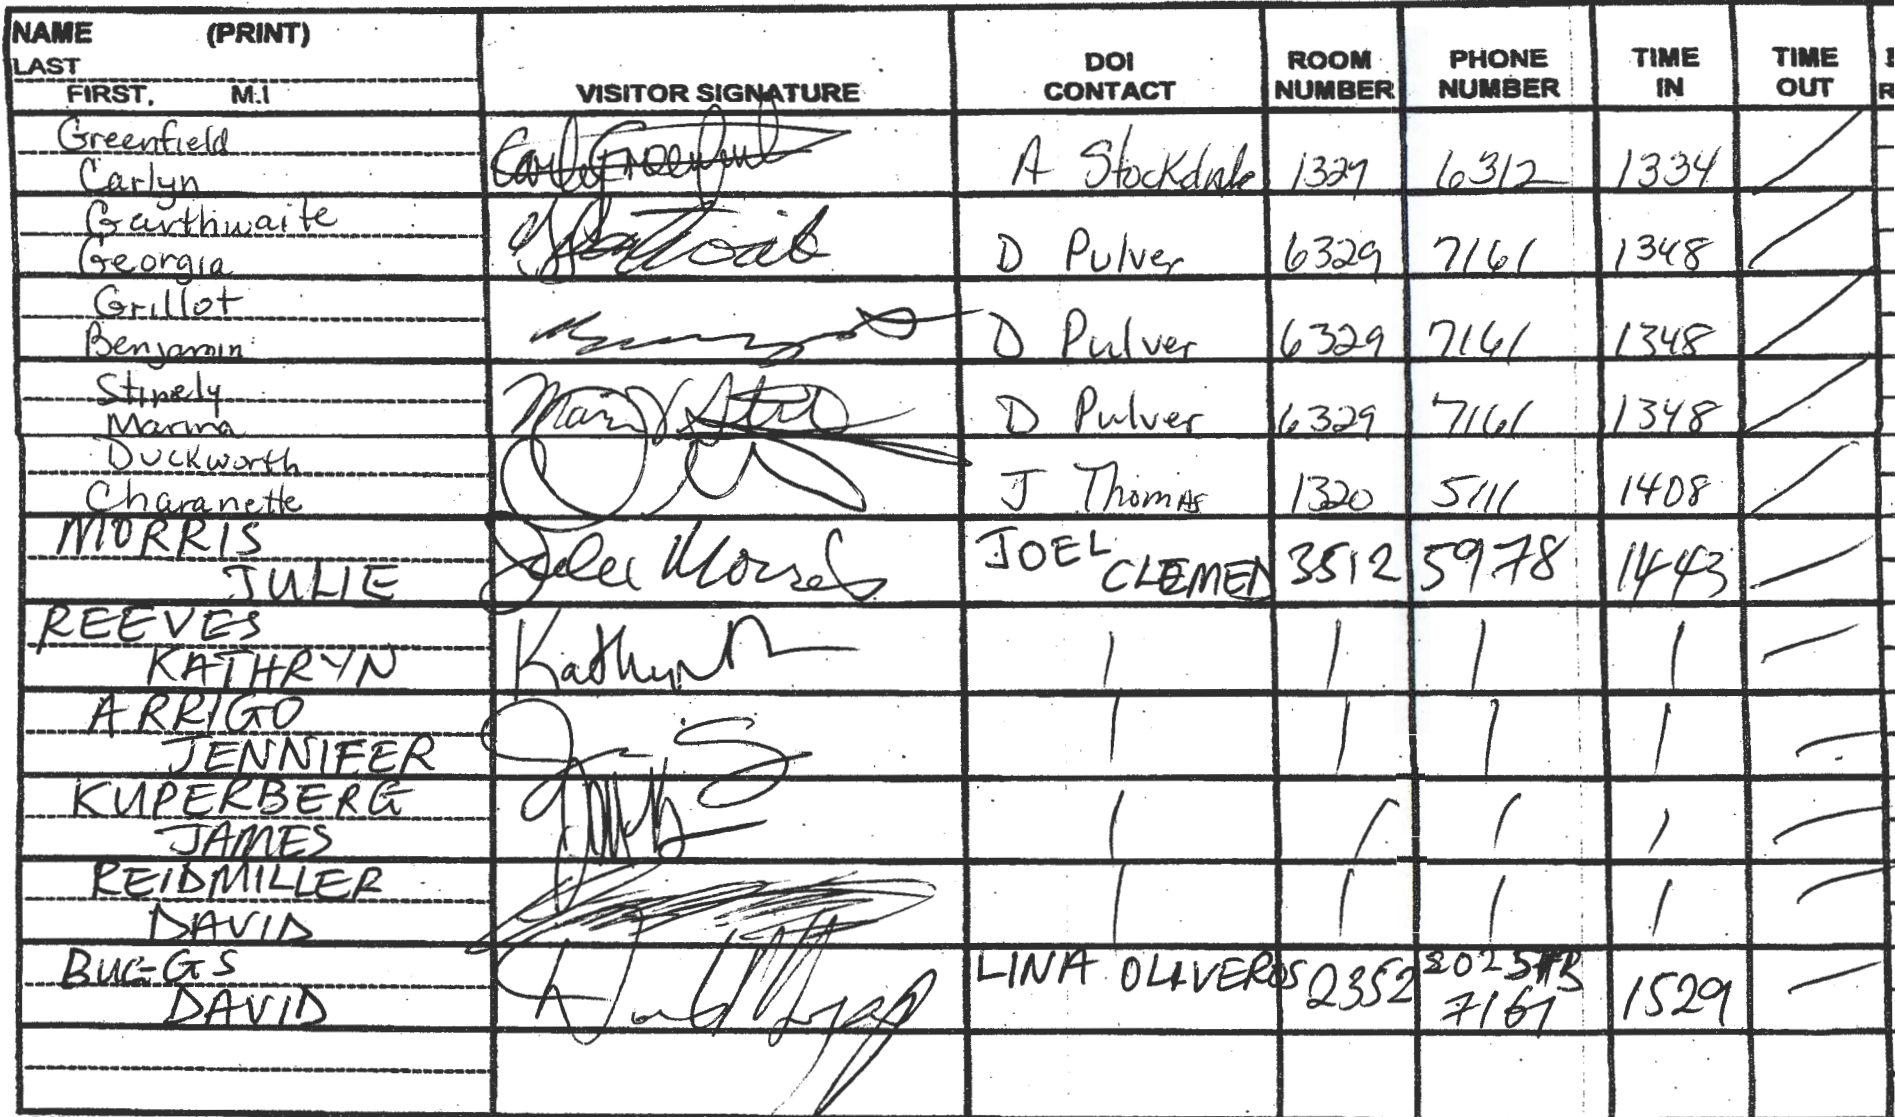 NAME (PRINT)
LAST
FIRST, M.I
VISITOR SIGNATURE
DOI CONTACT
ROOM NUMBER
PHONE NUMBER
TIME IN
TIME OUT
Greenfield
Carlyn
A Stockdale 1329 6312 1334
Garthwaite
Georgia
D Pulver 6329 7161 1348
Grillot
Benjamin
D Pulver 6329 7161 1348
Stinely
Marina
D Pulver 6329 7161 1348
Duckworth
Charanette
J Thomas 1320 5111 1408
MORRIS
JULIE
Julie Morris
JOEL CLEMEN 3512 5978 1443
REEVES
KATHRYN
Kathryn
ARRIGO
JENNIFER
KUPERBERG
JAMES
REIDMILLER
DAVID
BUGGS
DAVID
LINA OLIVEROS 2352
7161 1529